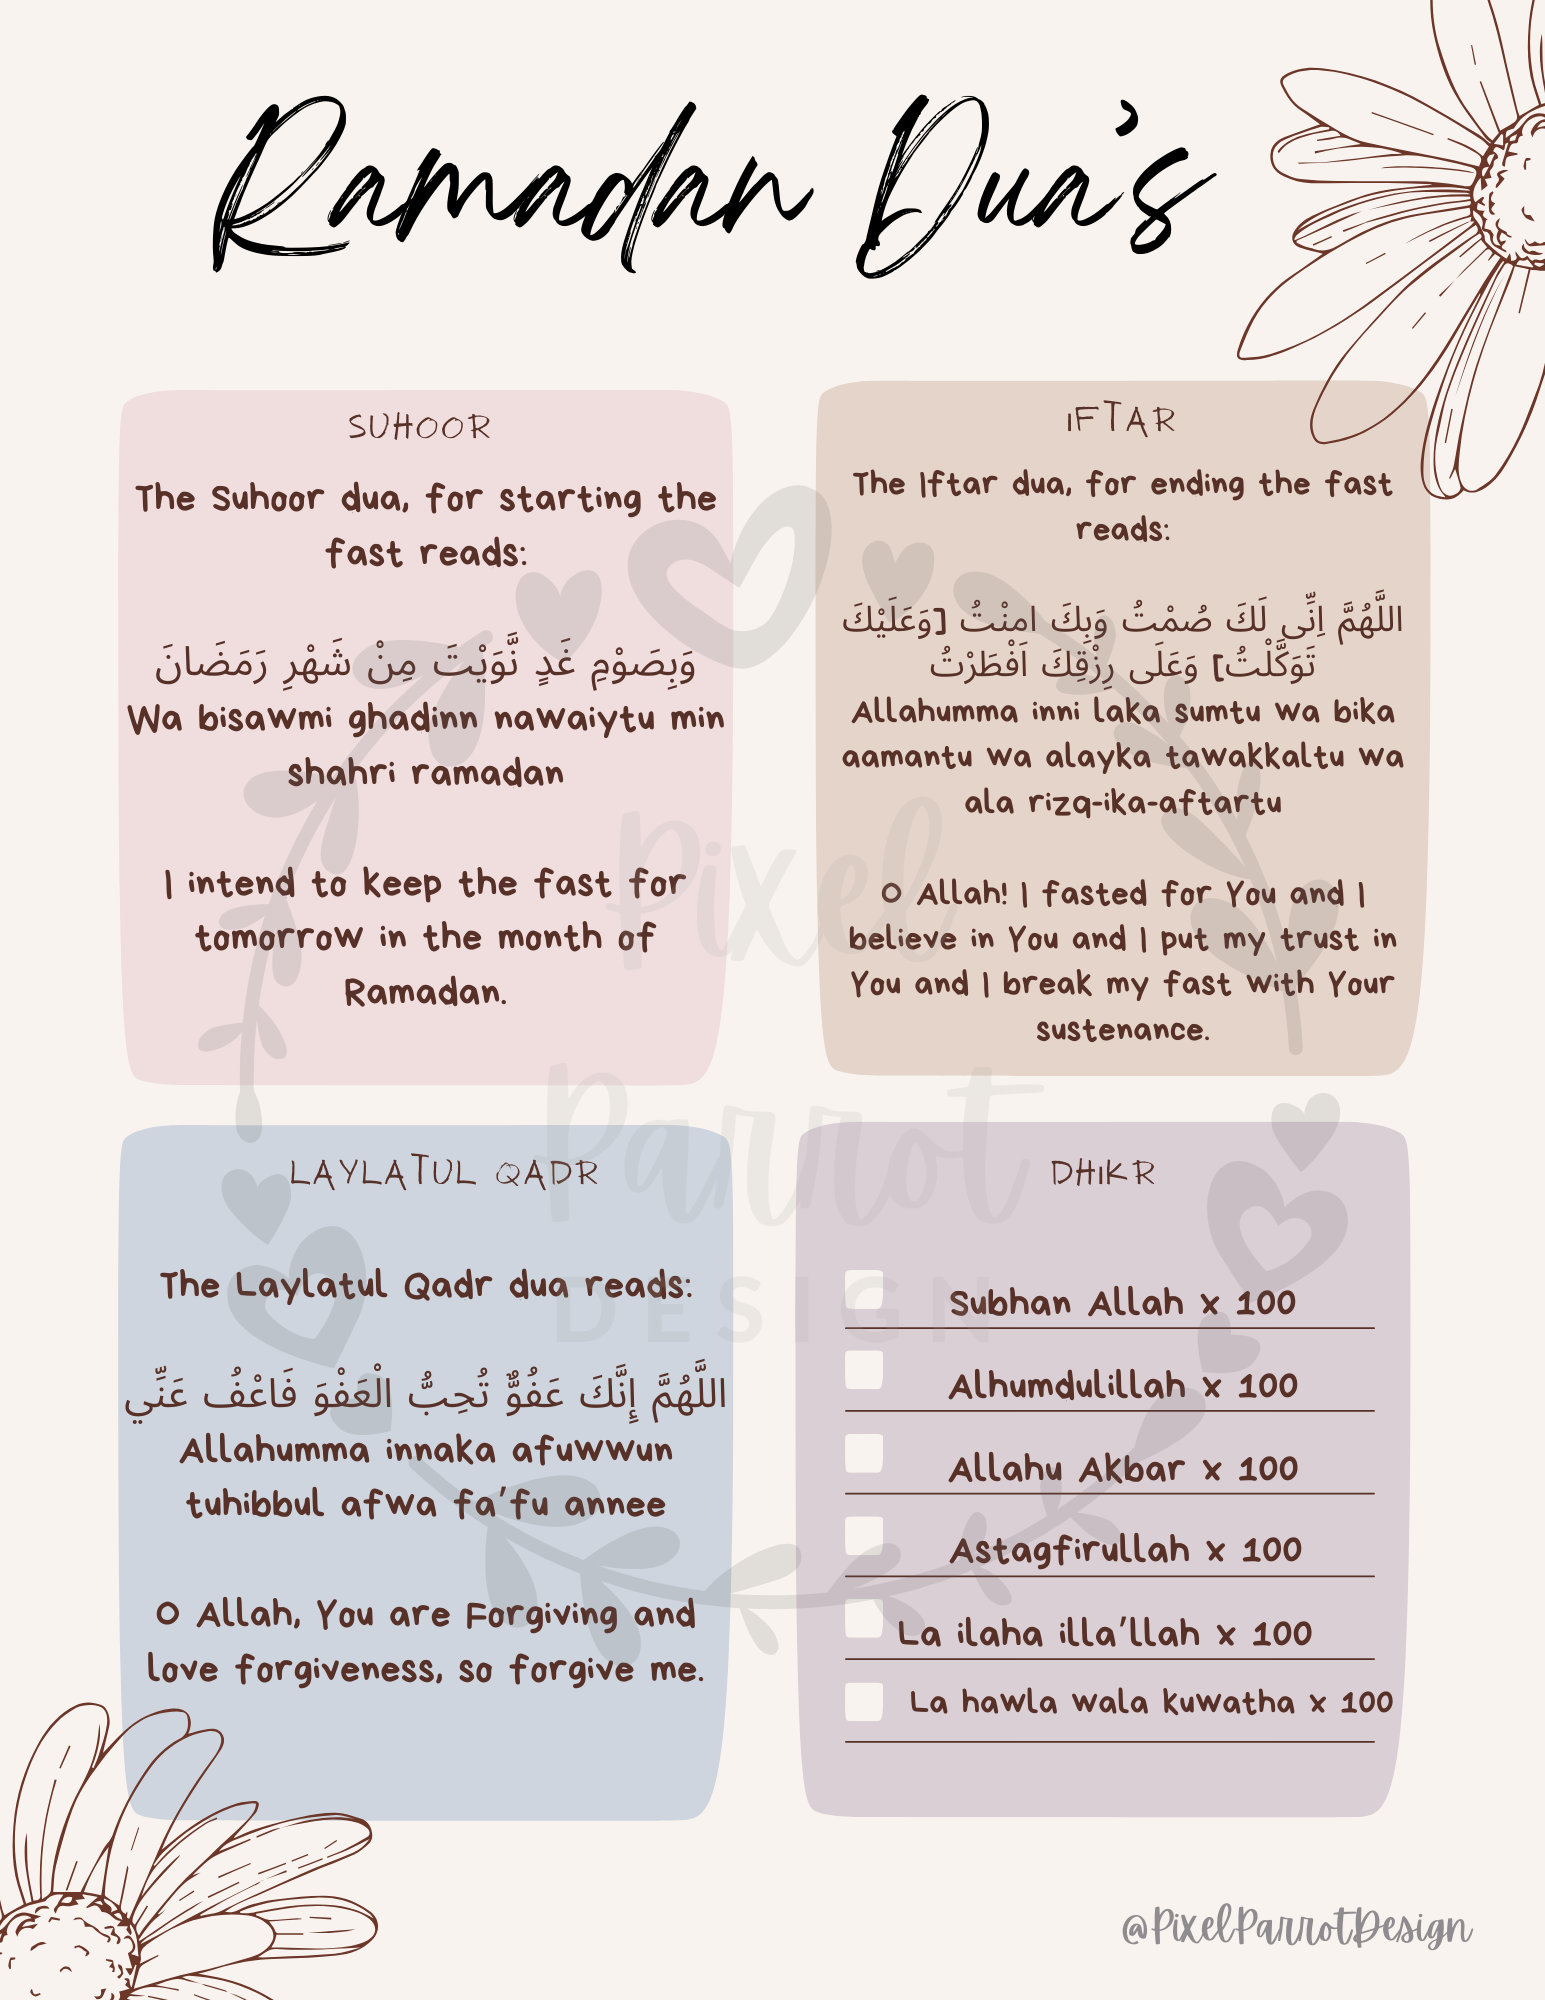 Ramadan Dua's
SUHOOR
The Suhoor dua, for starting the
fast reads:
وَبِصَوْمِ غَدٍ نَّوَيْتَ مِنْ شَهْرِ رَمَضَانَ
Wa bisawmi ghadinn nawaiytu min
shahri ramadan
I intend to keep the fast for
tomorrow in the month of
Ramadan.
IFTAR
The Iftar dua, for ending the fast
reads:
اللَّهُمَّ اِنِّى لَكَ صُمْتُ وَبِكَ امنْتُ [وَعَلَيْكَ
تَوَكَّلْتُ] وَعَلَى رِزْقِكَ اَفْطَرْتُ
Allahumma inni laka sumtu wa bika
aamantu wa alayka tawakkaltu wa
ala rizq-ika-aftartu
O Allah! I fasted for You and I
believe in You and I put my trust in
You and I break my fast with Your
sustenance.
LAYLATUL QADR
The Laylatul Qadr dua reads:
اللَّهُمَّ إِنَّكَ عَفُوٌّ تُحِبُّ الْعَفْوَ فَاعْفُ عَنِّي
Allahumma innaka afuwwun
tuhibbul afwa fa'fu annee
O Allah, You are Forgiving and
love forgiveness, so forgive me.
DHIKR
Subhan Allah x 100
Alhumdulillah x 100
Allahu Akbar x 100
Astagfirullah x 100
La ilaha illa'llah x 100
La hawla wala kuwatha x 100
Pixel
Parrot
DESIGN
@PixelParrotDesign